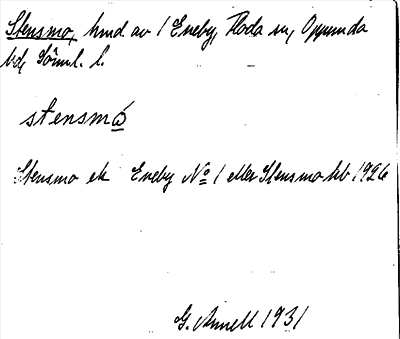 Stensmo, hmd av 1 Eneby, Floda sn, Oppunda
hd, Söml. l.
stensmó
Stensmo ek Eneby No 1 eller Stensmo hb 1926
G. Annell 1931